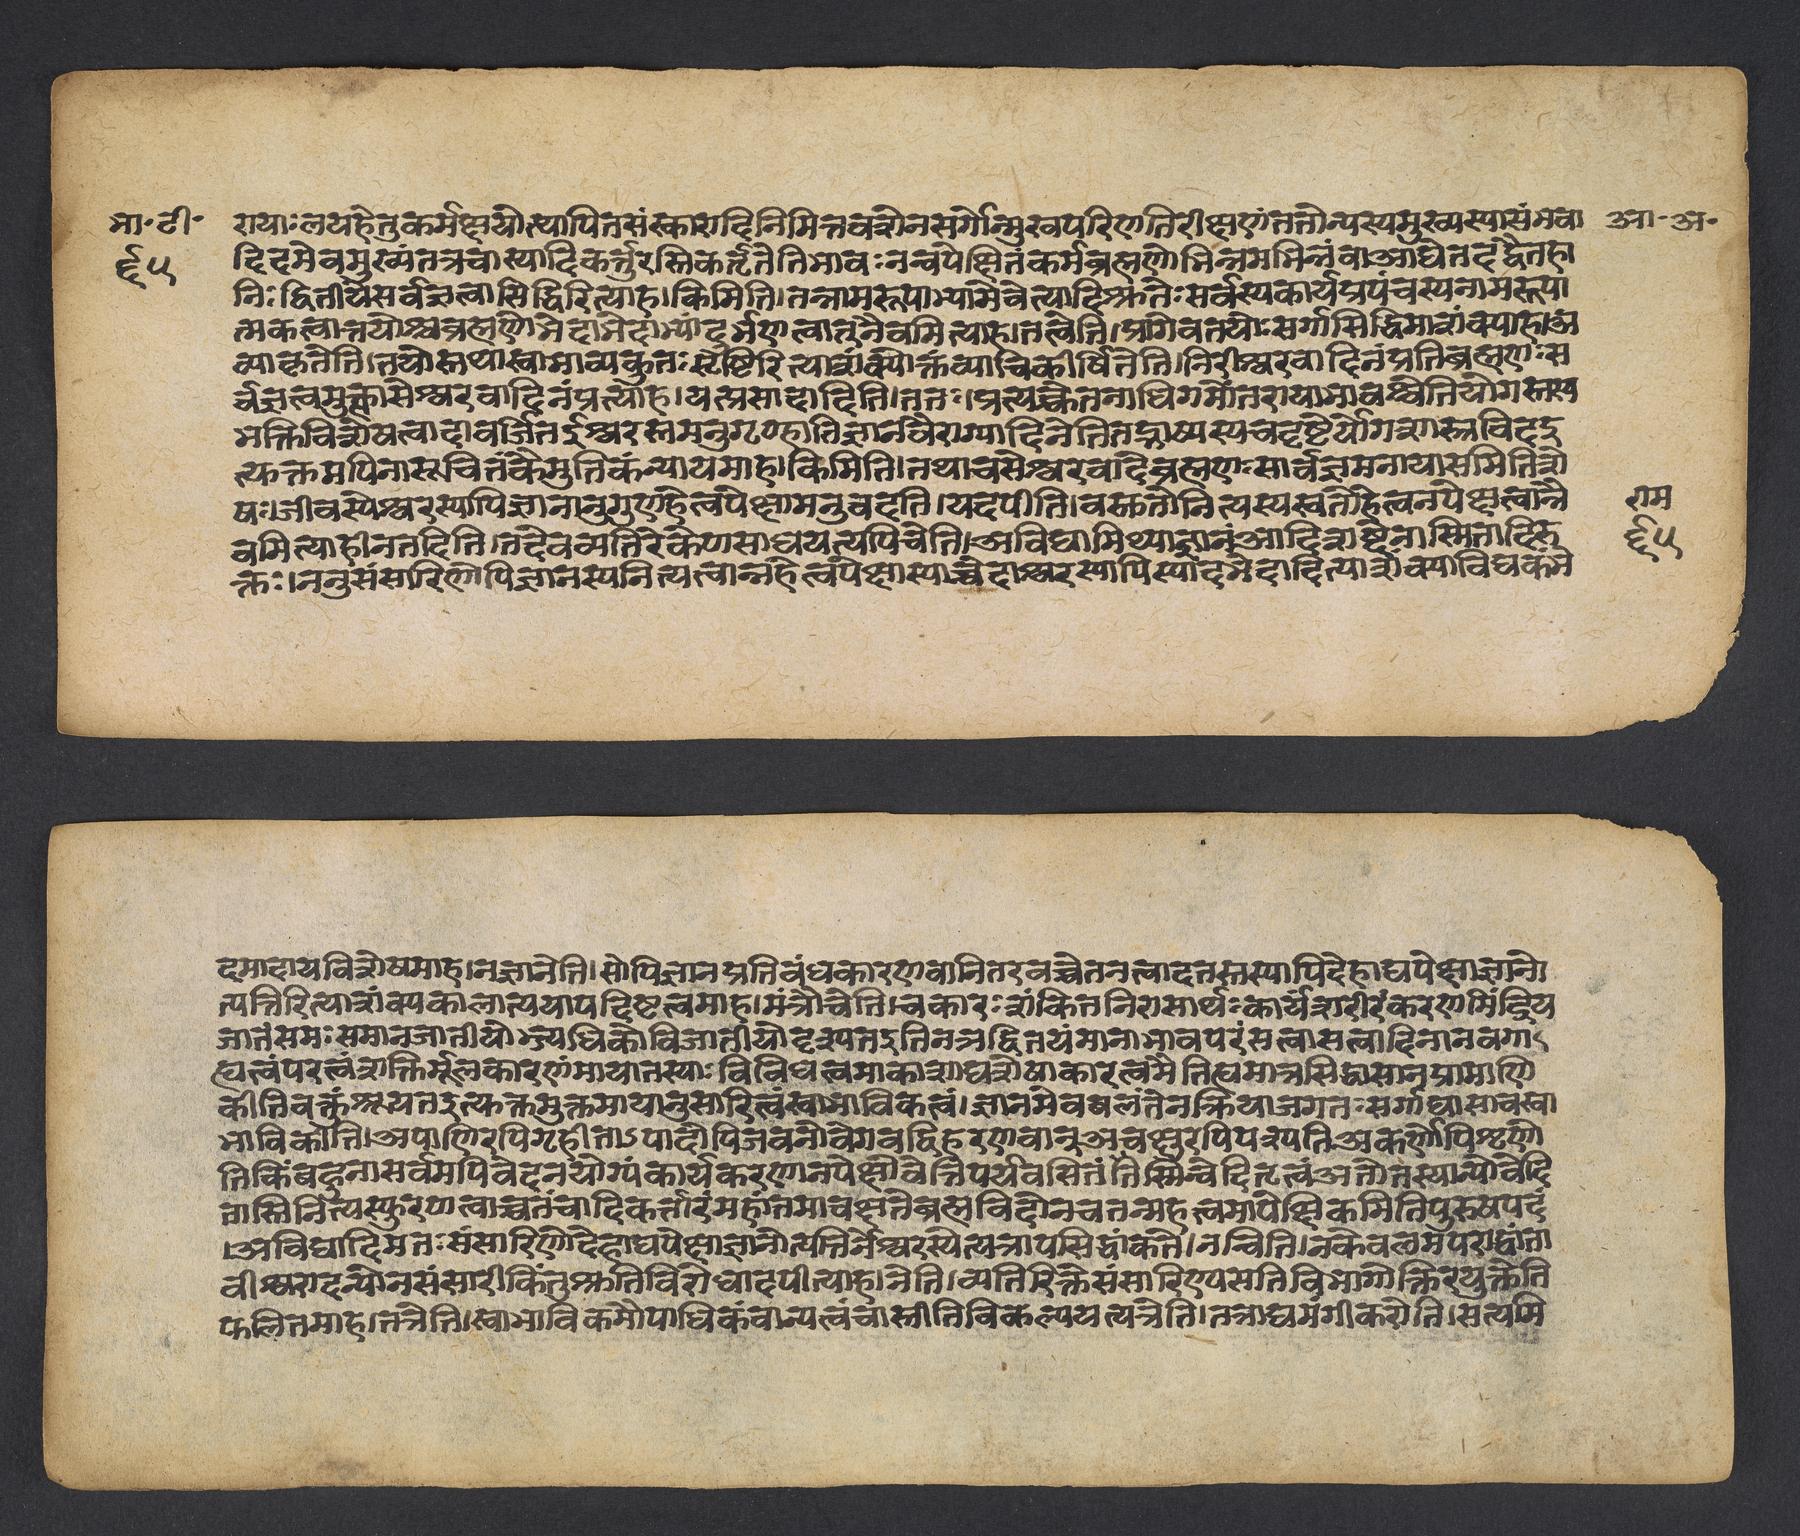 भा॰ टी॰
६५
आ॰ अ॰
राम
६५
रायाः लयहेतुकर्मक्षयोत्थापितसंस्कारादिनिमित्तवशेनसर्गोन्मुखपरिणतिरीक्षणंततोन्यस्यमुख्यस्यासंभवा
दिदमेवमुख्यंतत्रचास्यादिकर्त्तुरस्तिकर्तृतेतिभावः नन्वपेक्षितंकर्मब्रह्मणोभिन्नमभिन्नंवाआद्येतदद्वैतहा
निः द्वितीयेसर्वज्ञत्वासिद्धिरित्याह। किमिति। तन्नामरूपाभ्यामेवेत्यादिश्रुतेः सर्वस्यकार्यप्रपंचस्यनामरूपा
त्मकत्वात्तयोश्चब्रह्मणोभेदाभेदाभ्यांदुर्भणत्वात्तुनैवमित्याह। तत्वेति। प्रागेवतयोः सर्गासिद्धिमाशंक्याह। अ
व्याकृतेति। तयोस्तथास्वाभाव्यकुतः सृष्टिरित्याशंक्योक्तंव्याचिकीर्षितेति। निरीश्वरवादिनंप्रतिब्रह्मणः स
र्वज्ञत्वमुक्त्वासेश्वरवादिनंप्रत्याह। यत्प्रसादादिति। ततः। प्रत्यक्चेतनाधिगमोंतरायाभावश्चेतियोगसूत्रस्य
भक्तिविशेषत्वादावर्जितईश्वरस्तमनुगृण्हातिज्ञानवैराग्यादिनेतितद्भाष्यस्यचदृष्टेर्योगशास्त्रविददु
त्यक्तमपिनासूचितंकैमुतिकंन्यायमाह। किमिति। तथाचसेश्वरवादेब्रह्मणः सार्वज्ञमनायासमितिशे
षः। जीवस्येश्वरस्यापिज्ञानानुगुणहेत्वपेक्षामनुवदति। यदपीति। वक्ततोनित्यस्यस्वतोहेत्वनपेक्षत्वान्नै
वमित्याह। नतदिति। तदेवव्यतिरेकेणसाधयत्यपिचेति। अविद्यामिथ्याज्ञानंआदिशब्देनास्मितादिरु
क्तः। ननुसंसारिणोपिज्ञानस्यनित्यत्वान्नहेत्वपेक्षास्याच्चेदीश्वरस्यापिस्यादभेदादित्याशंक्याविद्यकंभे
दमादायविशेषमाह। नज्ञानेति। सोपिज्ञानप्रतिबंधकारणवानितरवच्चेतनत्वादतस्तस्यापिदेहाद्यपेक्षाज्ञानो
त्पत्तिरित्याशंक्यकालात्ययापदिष्टत्वमाह। मंत्रौचेति। चकारः शंकितनिरासार्थः कार्यंशरीरंकरणमिंद्रिय
जातंसमः समानजातीयोऽभ्यधिकोविजातीयोदृश्यतइतिनञद्वितयंमानाभावपरंसत्वासत्वादिनानवगा
ह्यत्वंपरत्वंशक्तिर्मूलकारणंमायातस्याः विविधत्वमाकाशाद्यशेषाकारत्वंमैतिह्यमात्रसिद्धासानप्रामाणि
कीतिवक्तुंश्रूयतइत्यक्तमुक्तमायानुसारित्वंस्वाभाविकत्वं। ज्ञानमेवबलंतेनक्रियाजगतः सर्गाद्यासाचस्वा
भाविकीति। अपाणिरपिगृहीताऽपादोपिजवनोवेगवद्विहरणवान्अचक्षुरपिपश्यतिअकर्णोपिशृणो
तिकिंबहुनासर्वमपिवेदनयोग्यंकार्यकरणानपेक्षोवेत्तिपर्यवसितंतस्मिन्वेदितृत्वंअतोतस्यान्योवेदि
तास्तिनित्यस्फुरणत्वाच्चतंचादिकर्त्तारंमहांतमाचक्षतेब्रह्मविदोनचतन्महत्वमापेक्षिकमितिपुरुषपदं
। अविद्यादिमतः संसारिणोदेहाद्यपेक्षाज्ञानोत्पत्तिर्नेश्वरस्येत्यत्रापसिद्धांकते। नन्विति। नकेवलमपराद्धांता
वीश्वरादन्योनसंसारीकिंतुश्रुतिविरोधादपीत्याह। नेति। व्यतिरिक्तेसंसारिण्यसतिविभागोक्तिरयुक्तेति
फलितमाह। तत्रेति। स्वाभाविकमौपाधिकंवान्यत्वंवास्तीतिविकल्पयत्यत्रेति। तत्राद्यमंगीकरोति। सत्यमि